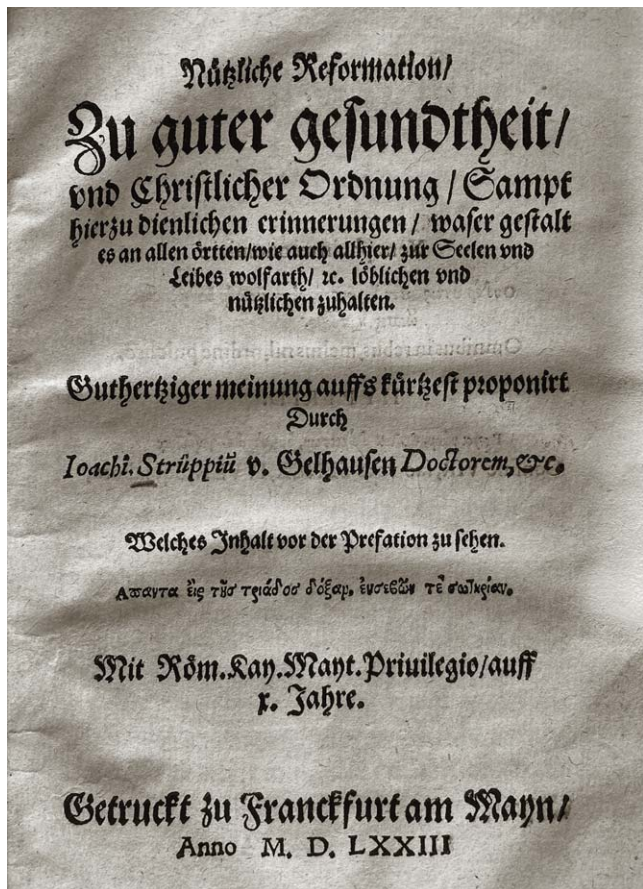 Nützliche Reformation/
Zu guter gesundtheit/
vnd Christlicher Ordnung / Sampt
hierzu dienlichen erinnerungen / waser gestalt
es an allen örtten/wie auch allhier/ zur Seelen vnd
Leibes wolfarth/ ꝛc. löblichen vnd
nützlichen zuhalten.
Guthertziger meinung auffs kürtzest proponirt
Durch
Ioachi. Strüppiū v. Gelhausen Doctorem, &c.
Welches Inhalt vor der Prefation zu sehen.
Απαντα εἰς τῆς τριάδος δόξαμ.
Mit Röm.Kay.Mayt.Priuilegio/auff
x. Jahre.
Getruckt zu Franckfurt am Mayn/
Anno M. D. LXXIII